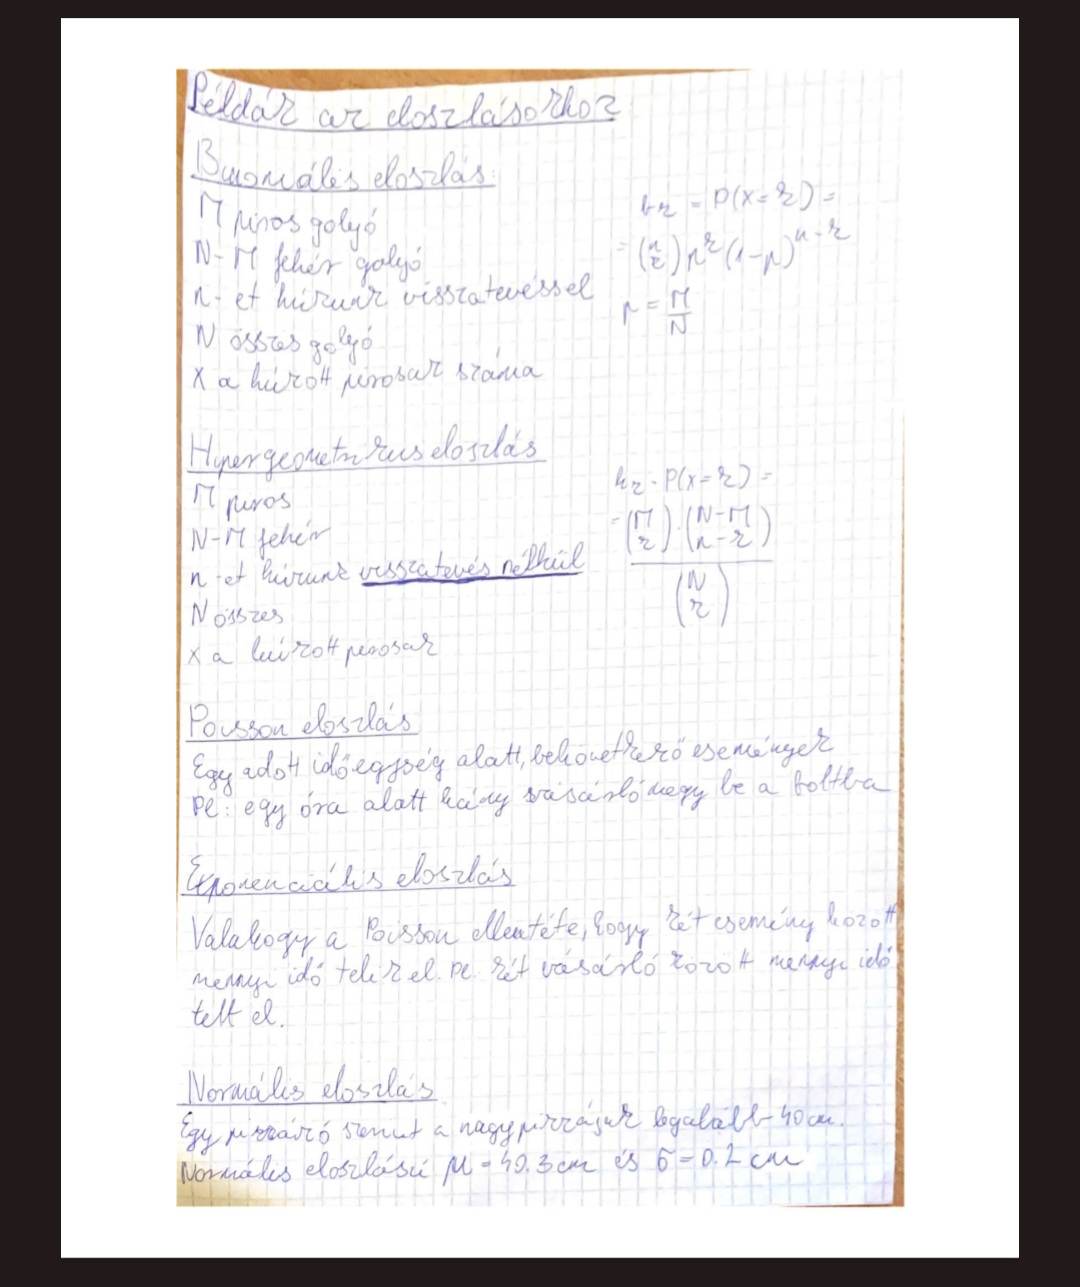 Példák az eloszlásokhoz
Binomiális eloszlás
M piros golyó
N-M fehér golyó
n-et húzunk visszatevéssel
N összes golyó
X a húzott pirosak száma
bk = P(X=k) =
= (n k) p^k (1-p)^n-k
p = M/N
Hipergeometrikus eloszlás
M piros
N-M fehér
n-et húzunk visszatevés nélkül
N összes
X a húzott pirosak
hk = P(X=k) =
= (M k) · (N-M n-k)
(N k)
Poisson eloszlás
Egy adott időegység alatt, bekövetkező események
Pl: egy óra alatt hány vásárló megy be a boltba
Exponenciális eloszlás
Valahogy a Poisson ellentéte, hogy két esemény között
mennyi idő telik el. Pl. két vásárló között mennyi idő
telt el.
Normális eloszlás
Egy pizzázó szerint a nagypizzájuk legalább 40 cm.
Normális eloszlású μ = 40.3 cm és σ = 0.2 cm